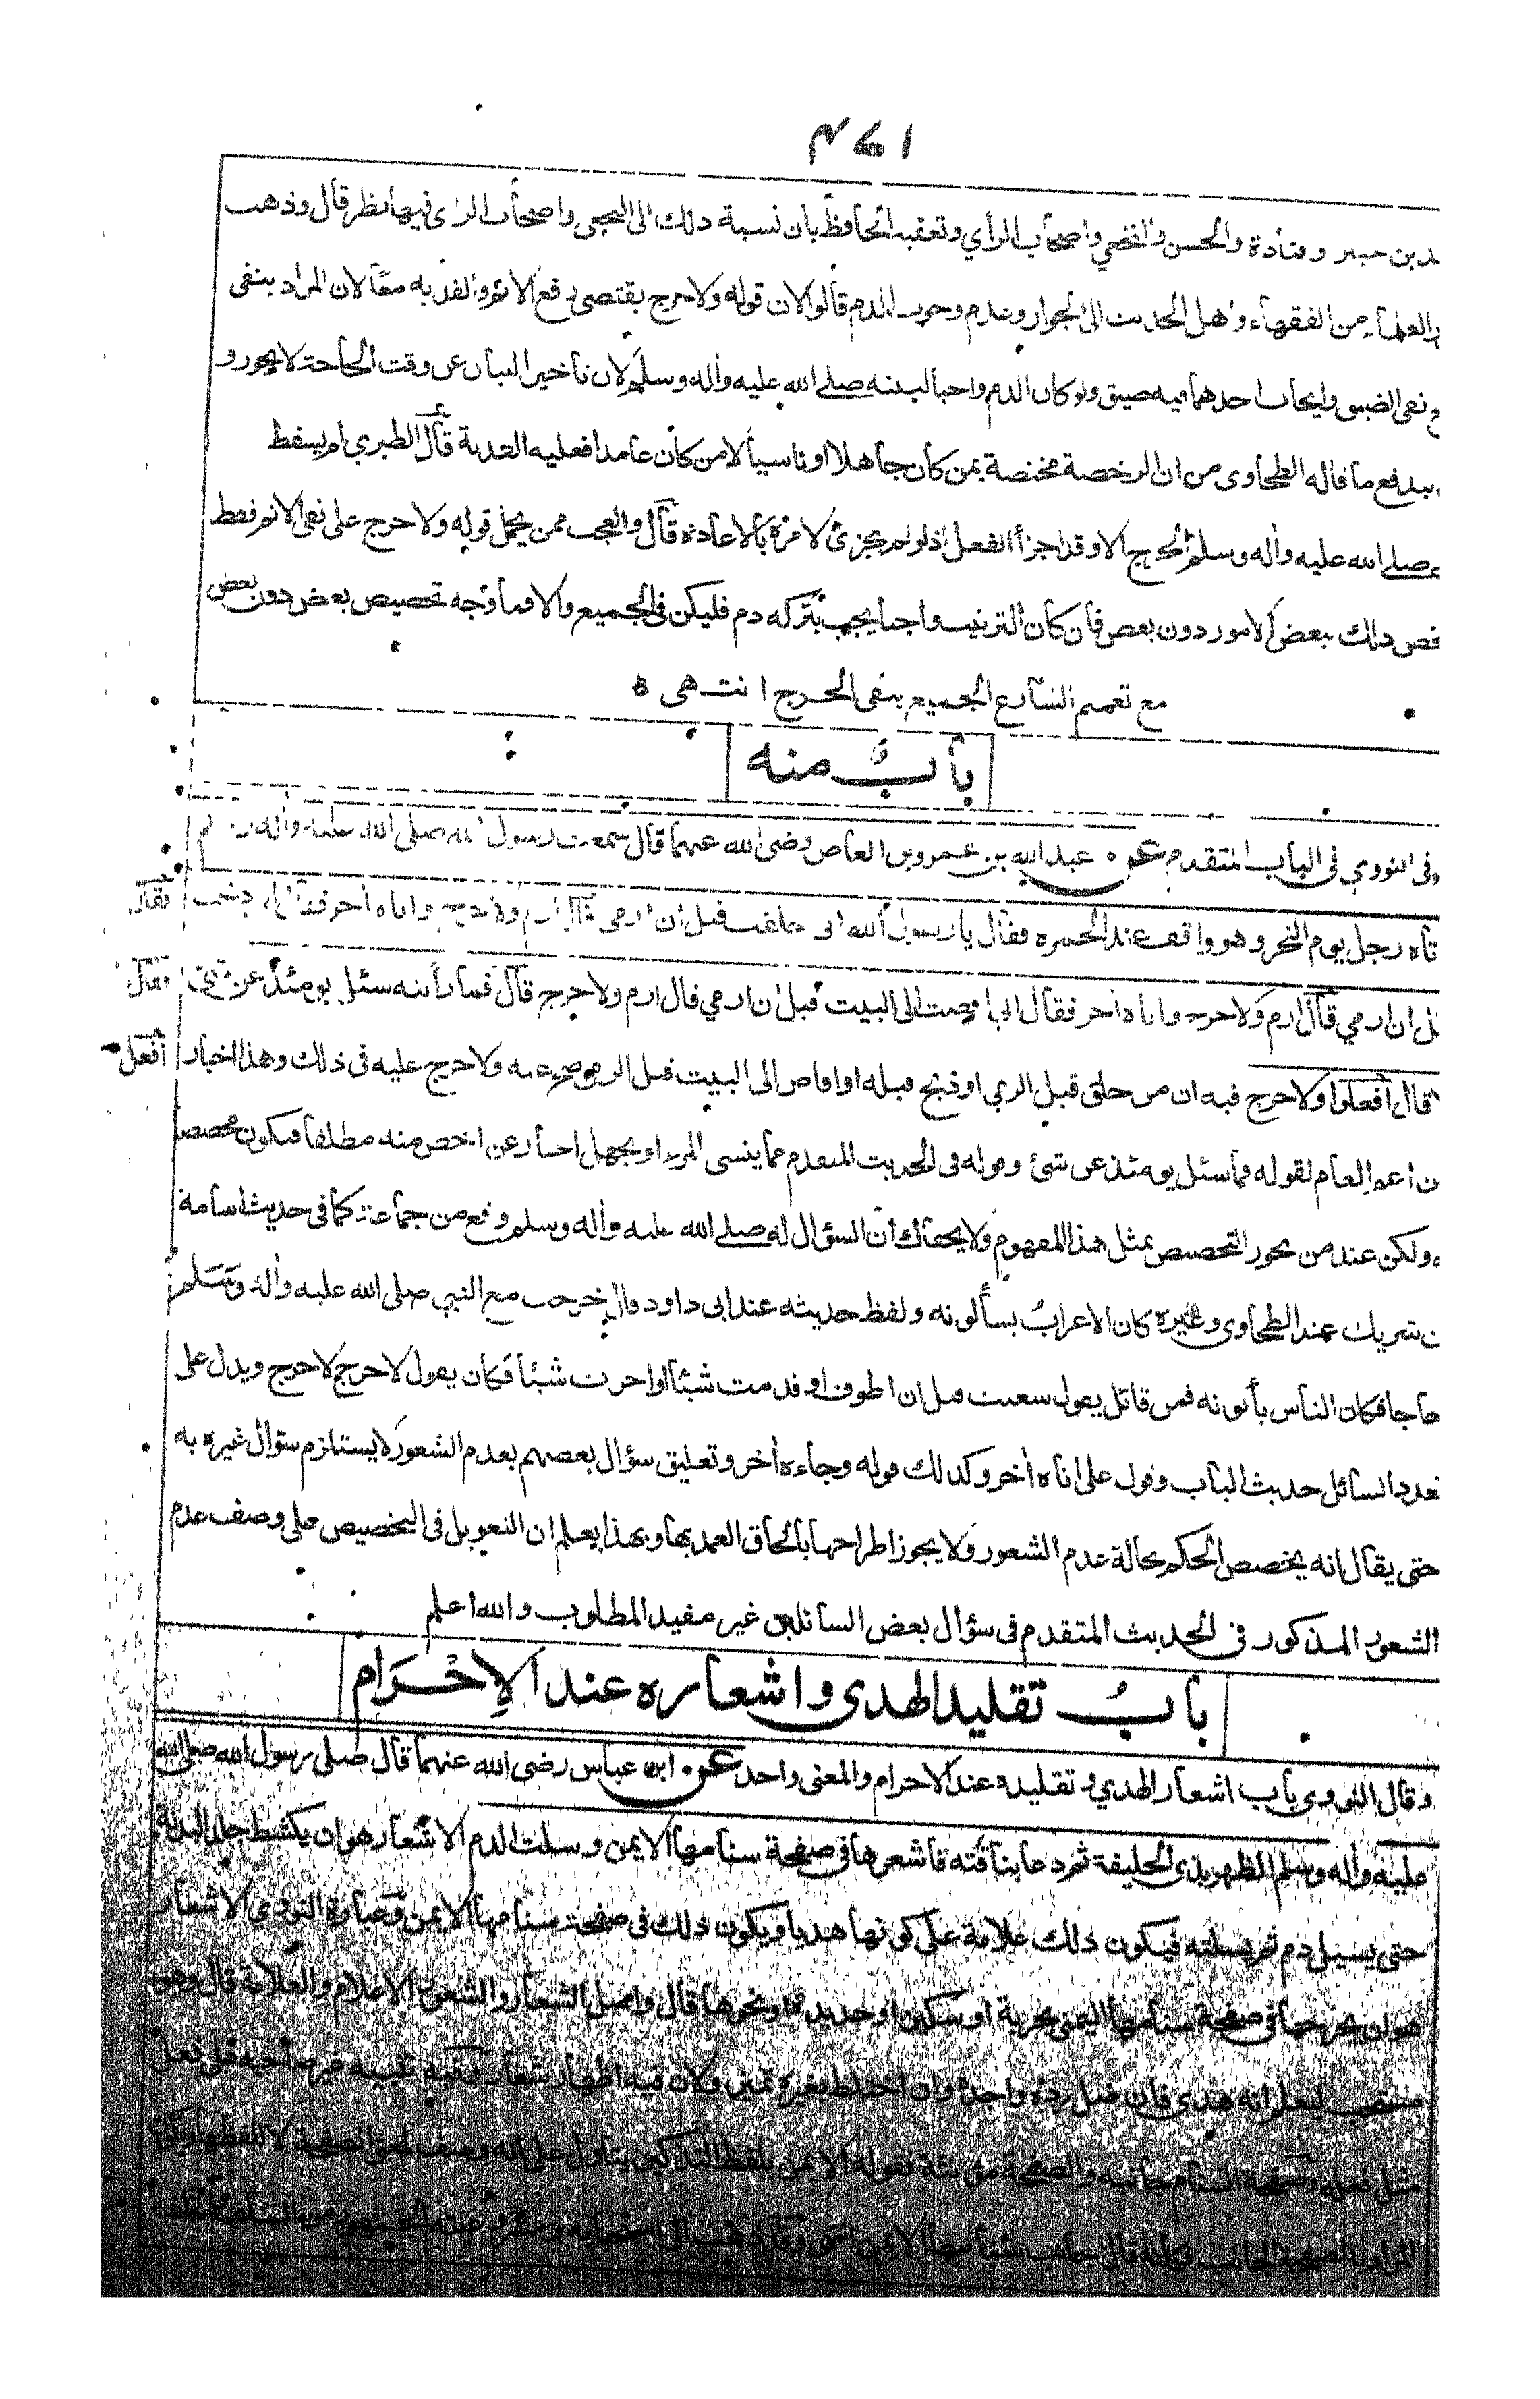 ٤٧١
بن جبير وقتادة والحسن والنخعي واصحاب الرأي وتعقبه الحافظ بان نسبة ذلك الى النخعي واصحاب الراى فيها نظر قال وذهب
العلماء من الفقهاء واهل الحديث الى الجواز وعدم وجوب الدم قالوا لان قوله ولا حرج يقتضى رفع الاثم والفدية معا لان المراد بنفى
نفى الضيق وايجاب احدهما فيه ضيق ولو كان الدم واجبا لبينه صلے الله عليه واله وسلم لان تاخير البيان عن وقت الحاجة لا يجوز و
يندفع ما قاله الطحاوى من ان الرخصة مختصة بمن كان جاهلا او ناسيا لا من كان عامدا فعليه الفدية قال الطبري لم يسقط
صلے الله عليه واله وسلم الحرج الا وقد اجزأ الفعل اذ لو لم يجزئ لامره بالاعادة قال والعجب ممن يحمل قوله ولا حرج على نفى الاثم فقط
يخص ذلك ببعض الامور دون بعض فان كان الترتيب واجبا يجب بتركه دم فليكن فى الجميع والا فما وجه تخصيص بعض دون بعض
مع تعميم الشارع الجميع بنفى الحرج انتهى
باب منه
وفى النووي فى الباب المتقدم عن عبد الله بن عمرو بن العاص رضى الله عنهما قال سمعت رسول الله صلى الله عليه واله
تاه رجل يوم النحر وهو واقف عند الجمرة فقال يا رسول الله انى حلقت قبل ان ارمى قال ارم ولا حرج واتاه اخر فقال انى ذبحت
قبل ان ارمي قال ارم ولا حرج واتاه اخر فقال انى افضت الى البيت قبل ان ارمي قال ارم ولا حرج قال فما رأيته سئل يومئذ عن شئ فقال
قال افعلوا ولا حرج فيه ان من حلق قبل الرمي او ذبح قبله او افاض الى البيت قبل الرمي صح ولا حرج عليه فى ذلك وهذا اخبار افعل
العام لقوله فما سئل يومئذ عن شئ وقوله فى الحديث المتقدم مما ينسى المرء او يجهل اخبار عن اخص منه مطلقا فيكون مخصصا
ولكن عند من يجوز التخصيص بمثل هذا المفهوم ولا يخفاك ان السؤال له صلے الله عليه واله وسلم وقع من جماعة كما فى حديث اسامة
بن شريك عند الطحاوى وغيره كان الاعراب يسألونه ولفظ حديثه عند ابى داود قال خرجت مع النبي صلى الله عليه واله وسلم
حاجا فكان الناس يأتونه فمن قائل يقول سعيت قبل ان اطوف او قدمت شيئا او اخرت شيئا فكان يقول لا حرج لا حرج ويدل على
تعدد السائل حديث الباب وقول على اتاه اخر وكذلك قوله وجاءه اخر وتعليق سؤال بعضهم بعدم الشعور لا يستلزم سؤال غيره به
حتى يقال انه يخصص الحكم بحالة عدم الشعور ولا يجوز اطراحها بالحاق العمد بها وبهذا يعلم ان التعويل فى التخصيص على وصف عدم
الشعور المذكور فى الحديث المتقدم فى سؤال بعض السائلين غير مفيد المطلوب والله اعلم
باب تقليد الهدى واشعاره عند الاحرام
وقال النووى باب اشعار الهدي وتقليدة عند الاحرام والمعنى واحد عن ابن عباس رضى الله عنهما قال صلى رسول الله صلى الله
عليه واله وسلم الظهر بذى الحليفة ثم دعا بناقته فاشعرها فى صفحة سنامها الايمن وسلت الدم الاشعار هو ان يكشط جلد البدنة
حتى يسيل دم ثم يسلته فيكون ذلك علامة على كونها هديا ويكون ذلك فى صفحة سنامها الايمن وعبارة النووي الاشعار
هو ان يجرحها فى صفحة سنامها اليمنى بحربة او سكين او حديدة او نحوها قال واصل الشعار والشعور الاعلام والعلامة قال وهو
مستحب ليعلم انه هدى فان ضل رده واجده وان اختلط بغيره تميز ولان فيه اظهار شعار وفيه تنبيه غير صاحبه على فعل
مثل فعله وصفحة السنام جانبه والصفحة مؤنثة فقوله الايمن بلفظ التذكير يتأول على انه وصف لمعنى الصفحة لا للفظها
المراد بالصفحة الجانب فكانه قال جانب سنامها الايمن